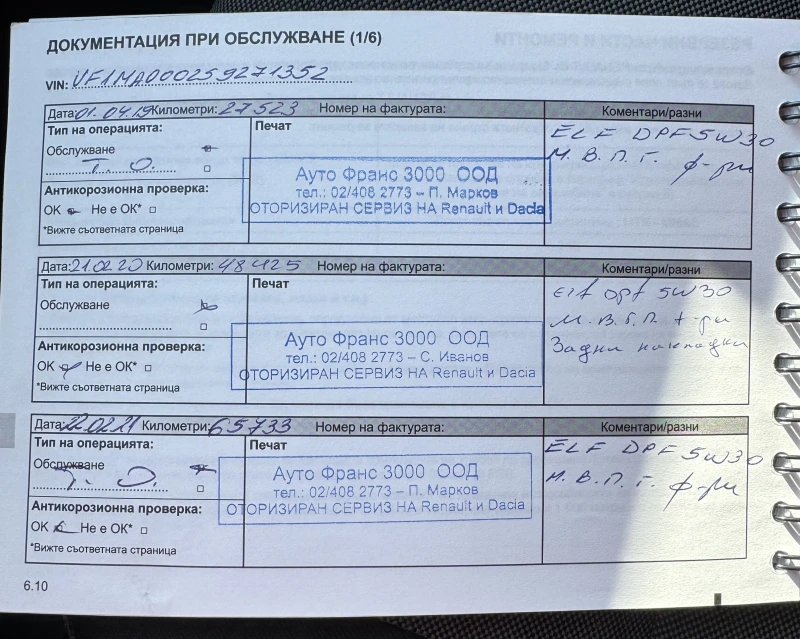 ДОКУМЕНТАЦИЯ ПРИ ОБСЛУЖВАНЕ (1/6)
VIN: VF1MA000259271352
Дата: 01.04.19 Километри: 27523 Номер на фактурата: Коментари/разни
Тип на операцията:
Печат
Обслужване
Т.О.
Антикорозионна проверка:
ОК Не е ОК*
*Вижте съответната страница
Ауто Франс 3000 ООД
тел.: 02/408 2773 – П. Марков
ОТОРИЗИРАН СЕРВИЗ НА Renault и Dacia
ELF DPF 5W30
М. В. П. Г. ф-ри
Дата: 21.02.20 Километри: 48425 Номер на фактурата: Коментари/разни
Тип на операцията:
Печат
Обслужване
Антикорозионна проверка:
ОК Не е ОК*
*Вижте съответната страница
Ауто Франс 3000 ООД
тел.: 02/408 2773 – С. Иванов
ОТОРИЗИРАН СЕРВИЗ НА Renault и Dacia
5W30
Задни накладки
Дата: 22.02.21 Километри: 65733 Номер на фактурата: Коментари/разни
Тип на операцията:
Печат
Обслужване
Т. О.
Антикорозионна проверка:
ОК Не е ОК*
*Вижте съответната страница
Ауто Франс 3000 ООД
тел.: 02/408 2773 – П. Марков
ОТОРИЗИРАН СЕРВИЗ НА Renault и Dacia
ELF DPF 5W30
М. В. П. Г. ф-ри
6.10